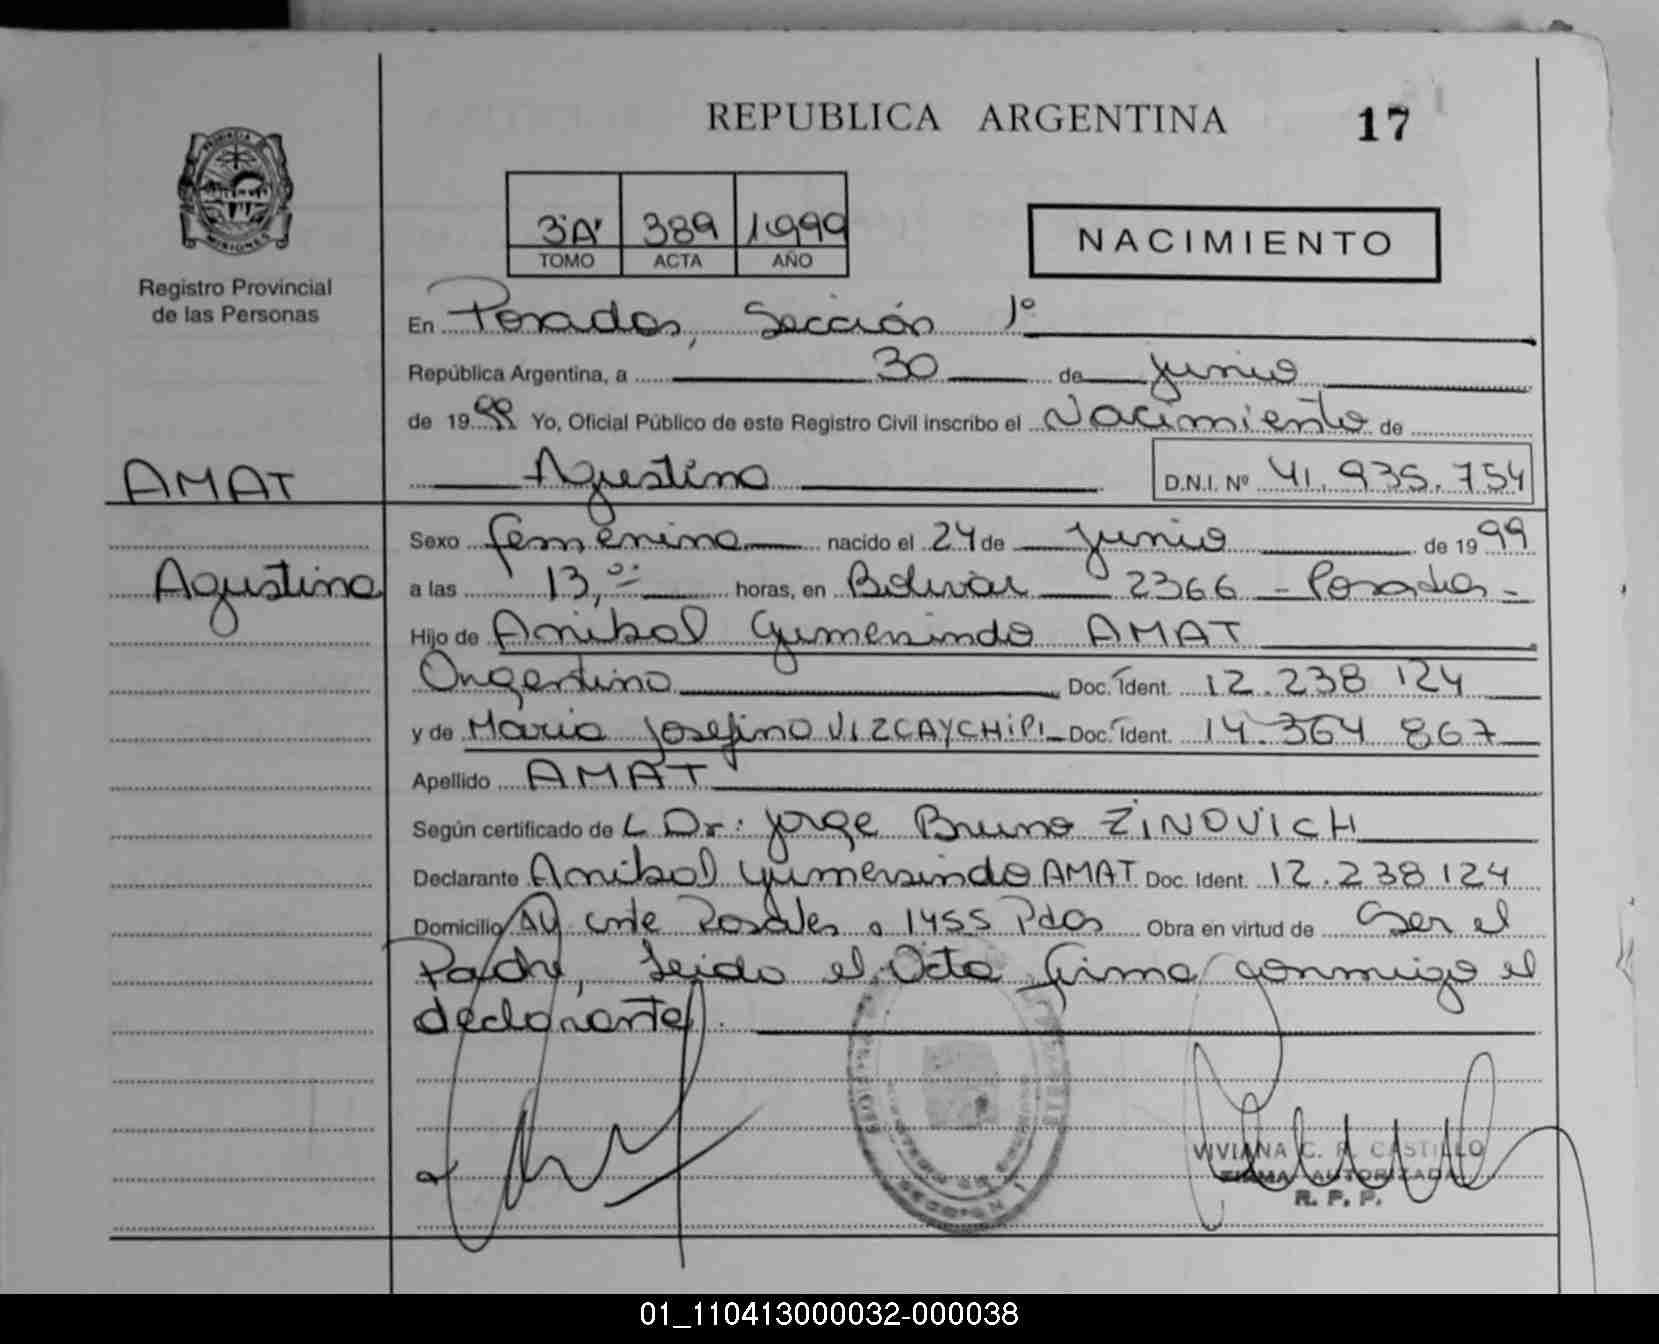 REPUBLICA ARGENTINA 17
PROVINCIA DE MISIONES
Registro Provincial
de las Personas
3ºA' 389 1.999
TOMO ACTA AÑO
NACIMIENTO
En Posadas, Sección 1º
República Argentina, a 30 de junio
de 1999 Yo, Oficial Público de este Registro Civil inscribo el Nacimiento de
AMAT
Agustina D.N.I. Nº 41.935.754
Sexo femenino nacido el 24 de junio de 1999
Agustina
a las 13,00 horas, en Bolívar 2366 - Posadas -
Hijo de Anibal Gumersindo AMAT
Argentino Doc. Ident. 12.238 124
y de Maria Josefina VIZCAYCHIPI Doc. Ident. 14.364 867
Apellido AMAT
Según certificado de L Dr: Jorge Bruno ZINOVICH
Declarante Anibal Gumersindo AMAT Doc. Ident. 12.238 124
Domicilio Av cnte Rosales a 1455 Pdas Obra en virtud de Ser el
Padre, leido el Acta firma conmigo el
declarante.
VIVIANA C. R. CASTILLO
FIRMA AUTORIZADA
R. P. P.
SECCION 1
01_110413000032-000038